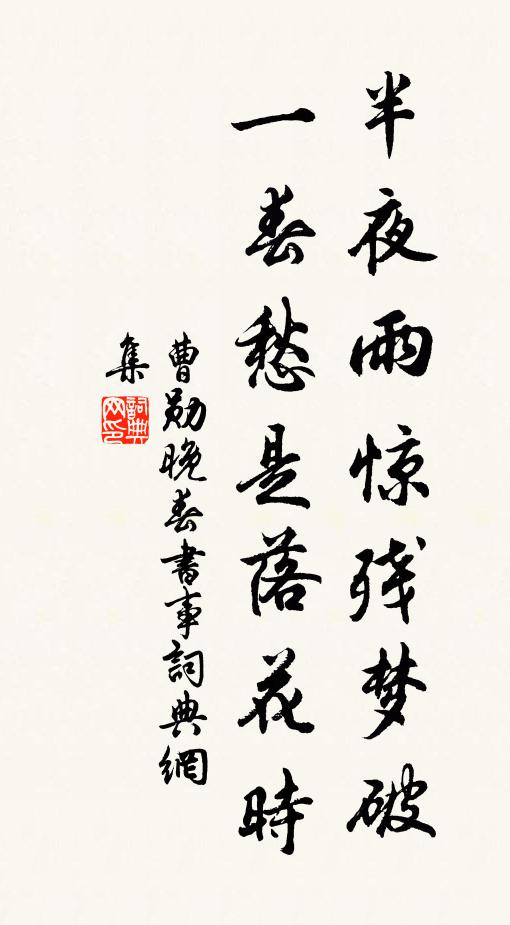 半夜雨惊残梦破
一春愁是落花時
曹勋晚春書事詞典網
集
詞典网印